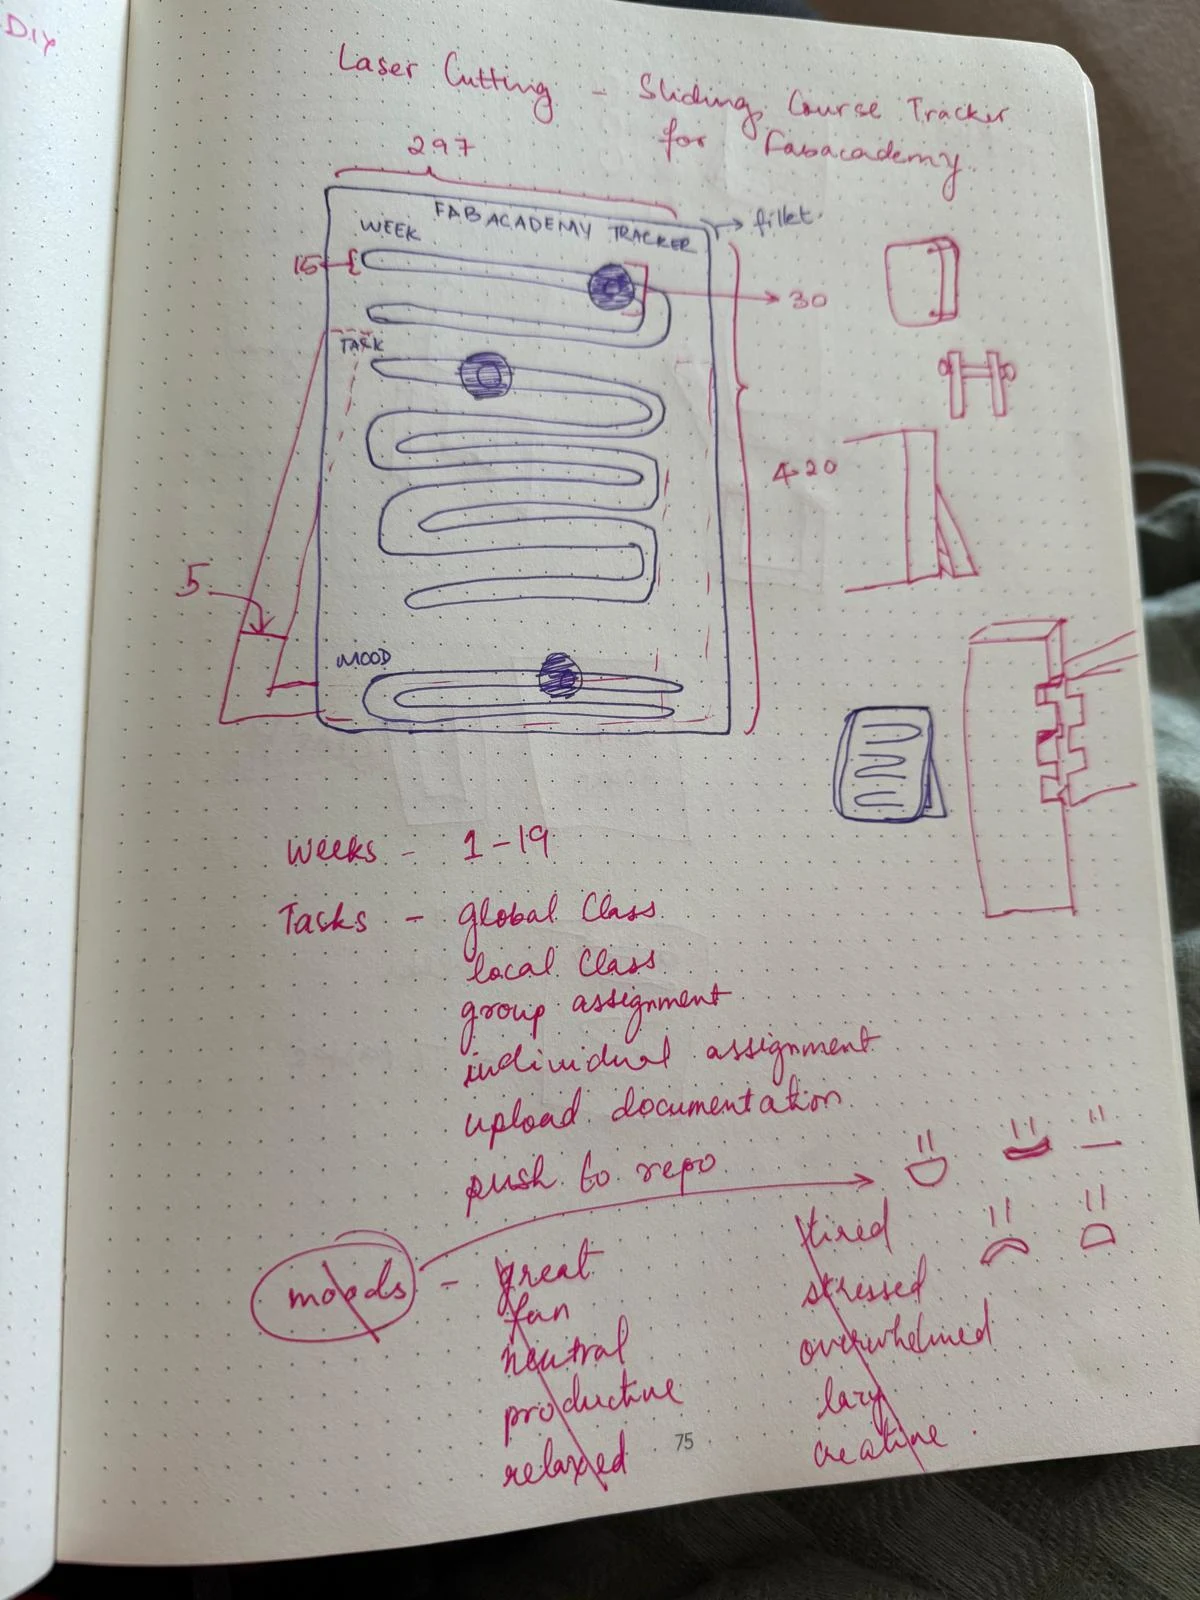 DIY
Laser Cutting - Sliding Course Tracker
for Fabacademy
297
FABACADEMY TRACKER
fillet
WEEK
15
30
TASK
420
5
MOOD
Weeks - 1-19
Tasks - global Class
local Class
group assignment
individual assignment
upload documentation
push to repo
moods - great
fun
neutral
productive
relaxed
tired
stressed
overwhelmed
lazy
creative
75